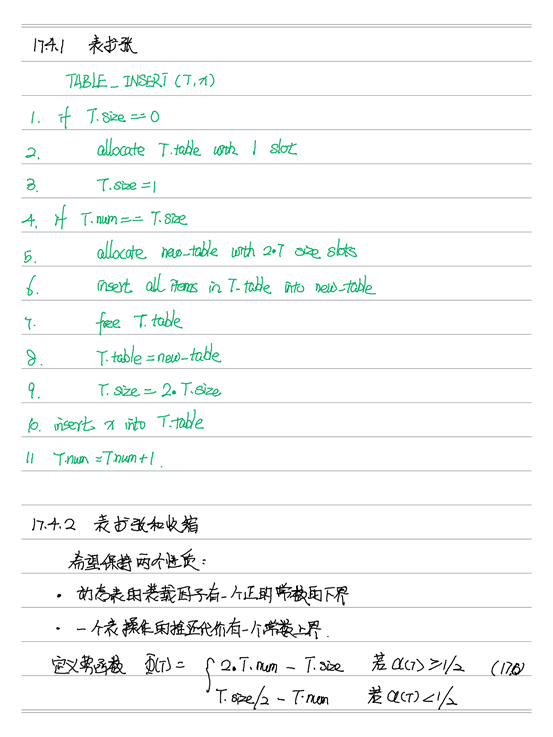 17.4.1 表扩张
TABLE_INSERT (T, x)
1. if T.size == 0
2. allocate T.table with 1 slot
3. T.size = 1
4. if T.num == T.size
5. allocate new_table with 2•T size slots
6. insert all items in T-table into new-table
7. free T.table
8. T.table = new-table
9. T.size = 2•T.size
10. insert x into T.table
11 T.num = T.num + 1.
17.4.2 表扩张和收缩
希望保持两个性质：
• 动态表的装载因子有一个正的常数的下界
• 一个表操作的摊还代价有一个常数上界.
定义势函数 Φ(T) = { 2•T.num - T.size 若α(T) ≥ 1/2 (17.6)
T.size/2 - T.num 若α(T) < 1/2